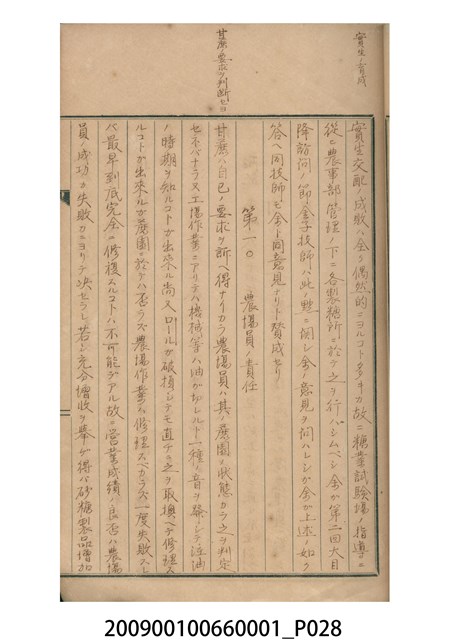 實生ノ育成
實生交配ノ成敗ハ全ク偶然的ニヨルコト多キガ故ニ糖業試驗場ノ指導ニ
從ヒ農事部管理ノ下ニ各製糖所ニ於テ之ヲ行ハシムベシ余ガ第二回大目
降訪問ノ節金子技師ハ此ノ點ニ関シ余ノ意見ヲ问ハレシガ余ガ上述ノ如ク
答ヘ同技師モ余ト同意見ナリト賛成セリ
第一〇 農場員ノ責任
甘蔗ノ要求ヲ判断セヨ
甘蔗ハ自己ノ要求ヲ訴ヘ得ナイカラ農場員ハ其ノ蔗園ノ狀態カラ之ヲ判定
セネバナラヌ工場作業ニアリテハ機械等ハ油ガ切レルト一種ノ音ヲ發シテ注油
ノ時期ヲ知ルコトガ出來ル尚又ロールガ破損シテモ直チニ之ヲ取換ヘテ修理ス
ルコトガ出來ルガ蔗園ニ於テハ否ラズ農場作業ハ修理スベカラズ一度失敗スレ
バ最早到底完全ニ修複スルコトハ不可能デアル故ニ營業成績ノ良否ハ農場
員ノ成功ト失敗カニヨリテ決セラレ若シ充分增收ヲ舉ゲ得バ砂糖製品增加
200900100660001_P028